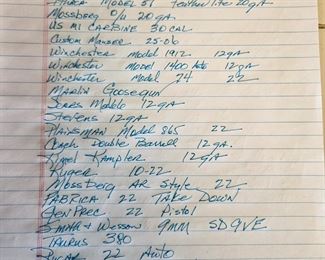 Model 37 Featherlite 20ga
Mossberg O/U 20 ga.
US M1 Carbine 30 cal
Custom Mauser 25-06
Winchester Model 1912 12ga
Winchester Model 1400 12ga
Winchester Model 74 22
Marlin Goosegun
Sears Modelo 12ga
Stevens 12ga
Plainsman Model 865 22
Coach Double Barrell 12ga.
12ga
Ruger 10-22
Mossberg AR Style 22
Fabrica 22 Take Down
Gen Prec 22 Pistol
Smith & Wesson 9mm SD9VE
Taurus 380
22 Auto